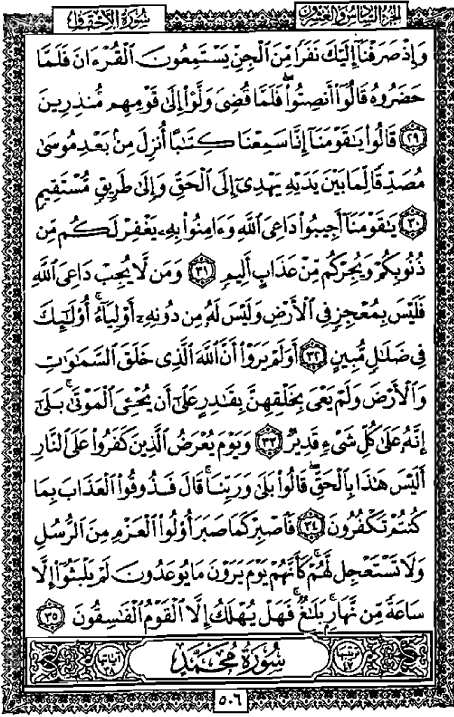 سُورَةُ الأَحْقَافِ الجُزْءُ السَّادِسُ وَالعِشْرُونَ
وَإِذْ صَرَفْنَآ إِلَيْكَ نَفَرًا مِّنَ ٱلْجِنِّ يَسْتَمِعُونَ ٱلْقُرْءَانَ فَلَمَّا
حَضَرُوهُ قَالُوٓا۟ أَنصِتُوا۟ ۖ فَلَمَّا قُضِىَ وَلَّوْا۟ إِلَىٰ قَوْمِهِم مُّنذِرِينَ
٢٩ قَالُوا۟ يَٰقَوْمَنَآ إِنَّا سَمِعْنَا كِتَٰبًا أُنزِلَ مِنۢ بَعْدِ مُوسَىٰ
مُصَدِّقًا لِّمَا بَيْنَ يَدَيْهِ يَهْدِىٓ إِلَى ٱلْحَقِّ وَإِلَىٰ طَرِيقٍ مُّسْتَقِيمٍ
٣٠ يَٰقَوْمَنَآ أَجِيبُوا۟ دَاعِىَ ٱللَّهِ وَءَامِنُوا۟ بِهِۦ يَغْفِرْ لَكُم مِّن
ذُنُوبِكُمْ وَيُجِرْكُم مِّنْ عَذَابٍ أَلِيمٍ ٣١ وَمَن لَّا يُجِبْ دَاعِىَ ٱللَّهِ
فَلَيْسَ بِمُعْجِزٍ فِى ٱلْأَرْضِ وَلَيْسَ لَهُۥ مِن دُونِهِۦٓ أَوْلِيَآءُ ۚ أُو۟لَٰٓئِكَ
فِى ضَلَٰلٍ مُّبِينٍ ٣٢ أَوَلَمْ يَرَوْا۟ أَنَّ ٱللَّهَ ٱلَّذِى خَلَقَ ٱلسَّمَٰوَٰتِ
وَٱلْأَرْضَ وَلَمْ يَعْىَ بِخَلْقِهِنَّ بِقَٰدِرٍ عَلَىٰٓ أَن يُحْۦِىَ ٱلْمَوْتَىٰ ۚ بَلَىٰٓ
إِنَّهُۥ عَلَىٰ كُلِّ شَىْءٍ قَدِيرٌ ٣٣ وَيَوْمَ يُعْرَضُ ٱلَّذِينَ كَفَرُوا۟ عَلَى ٱلنَّارِ
أَلَيْسَ هَٰذَا بِٱلْحَقِّ ۖ قَالُوا۟ بَلَىٰ وَرَبِّنَا ۚ قَالَ فَذُوقُوا۟ ٱلْعَذَابَ بِمَا
كُنتُمْ تَكْفُرُونَ ٣٤ فَٱصْبِرْ كَمَا صَبَرَ أُو۟لُوا۟ ٱلْعَزْمِ مِنَ ٱلرُّسُلِ
وَلَا تَسْتَعْجِل لَّهُمْ ۚ كَأَنَّهُمْ يَوْمَ يَرَوْنَ مَا يُوعَدُونَ لَمْ يَلْبَثُوٓا۟ إِلَّا
سَاعَةً مِّن نَّهَارٍۭ ۚ بَلَٰغٌ ۚ فَهَلْ يُهْلَكُ إِلَّا ٱلْقَوْمُ ٱلْفَٰسِقُونَ ٣٥
ترتيبها ٤٧ سُورَةُ مُحَمَّدٍ آياتها ٣٨
٥٠٦